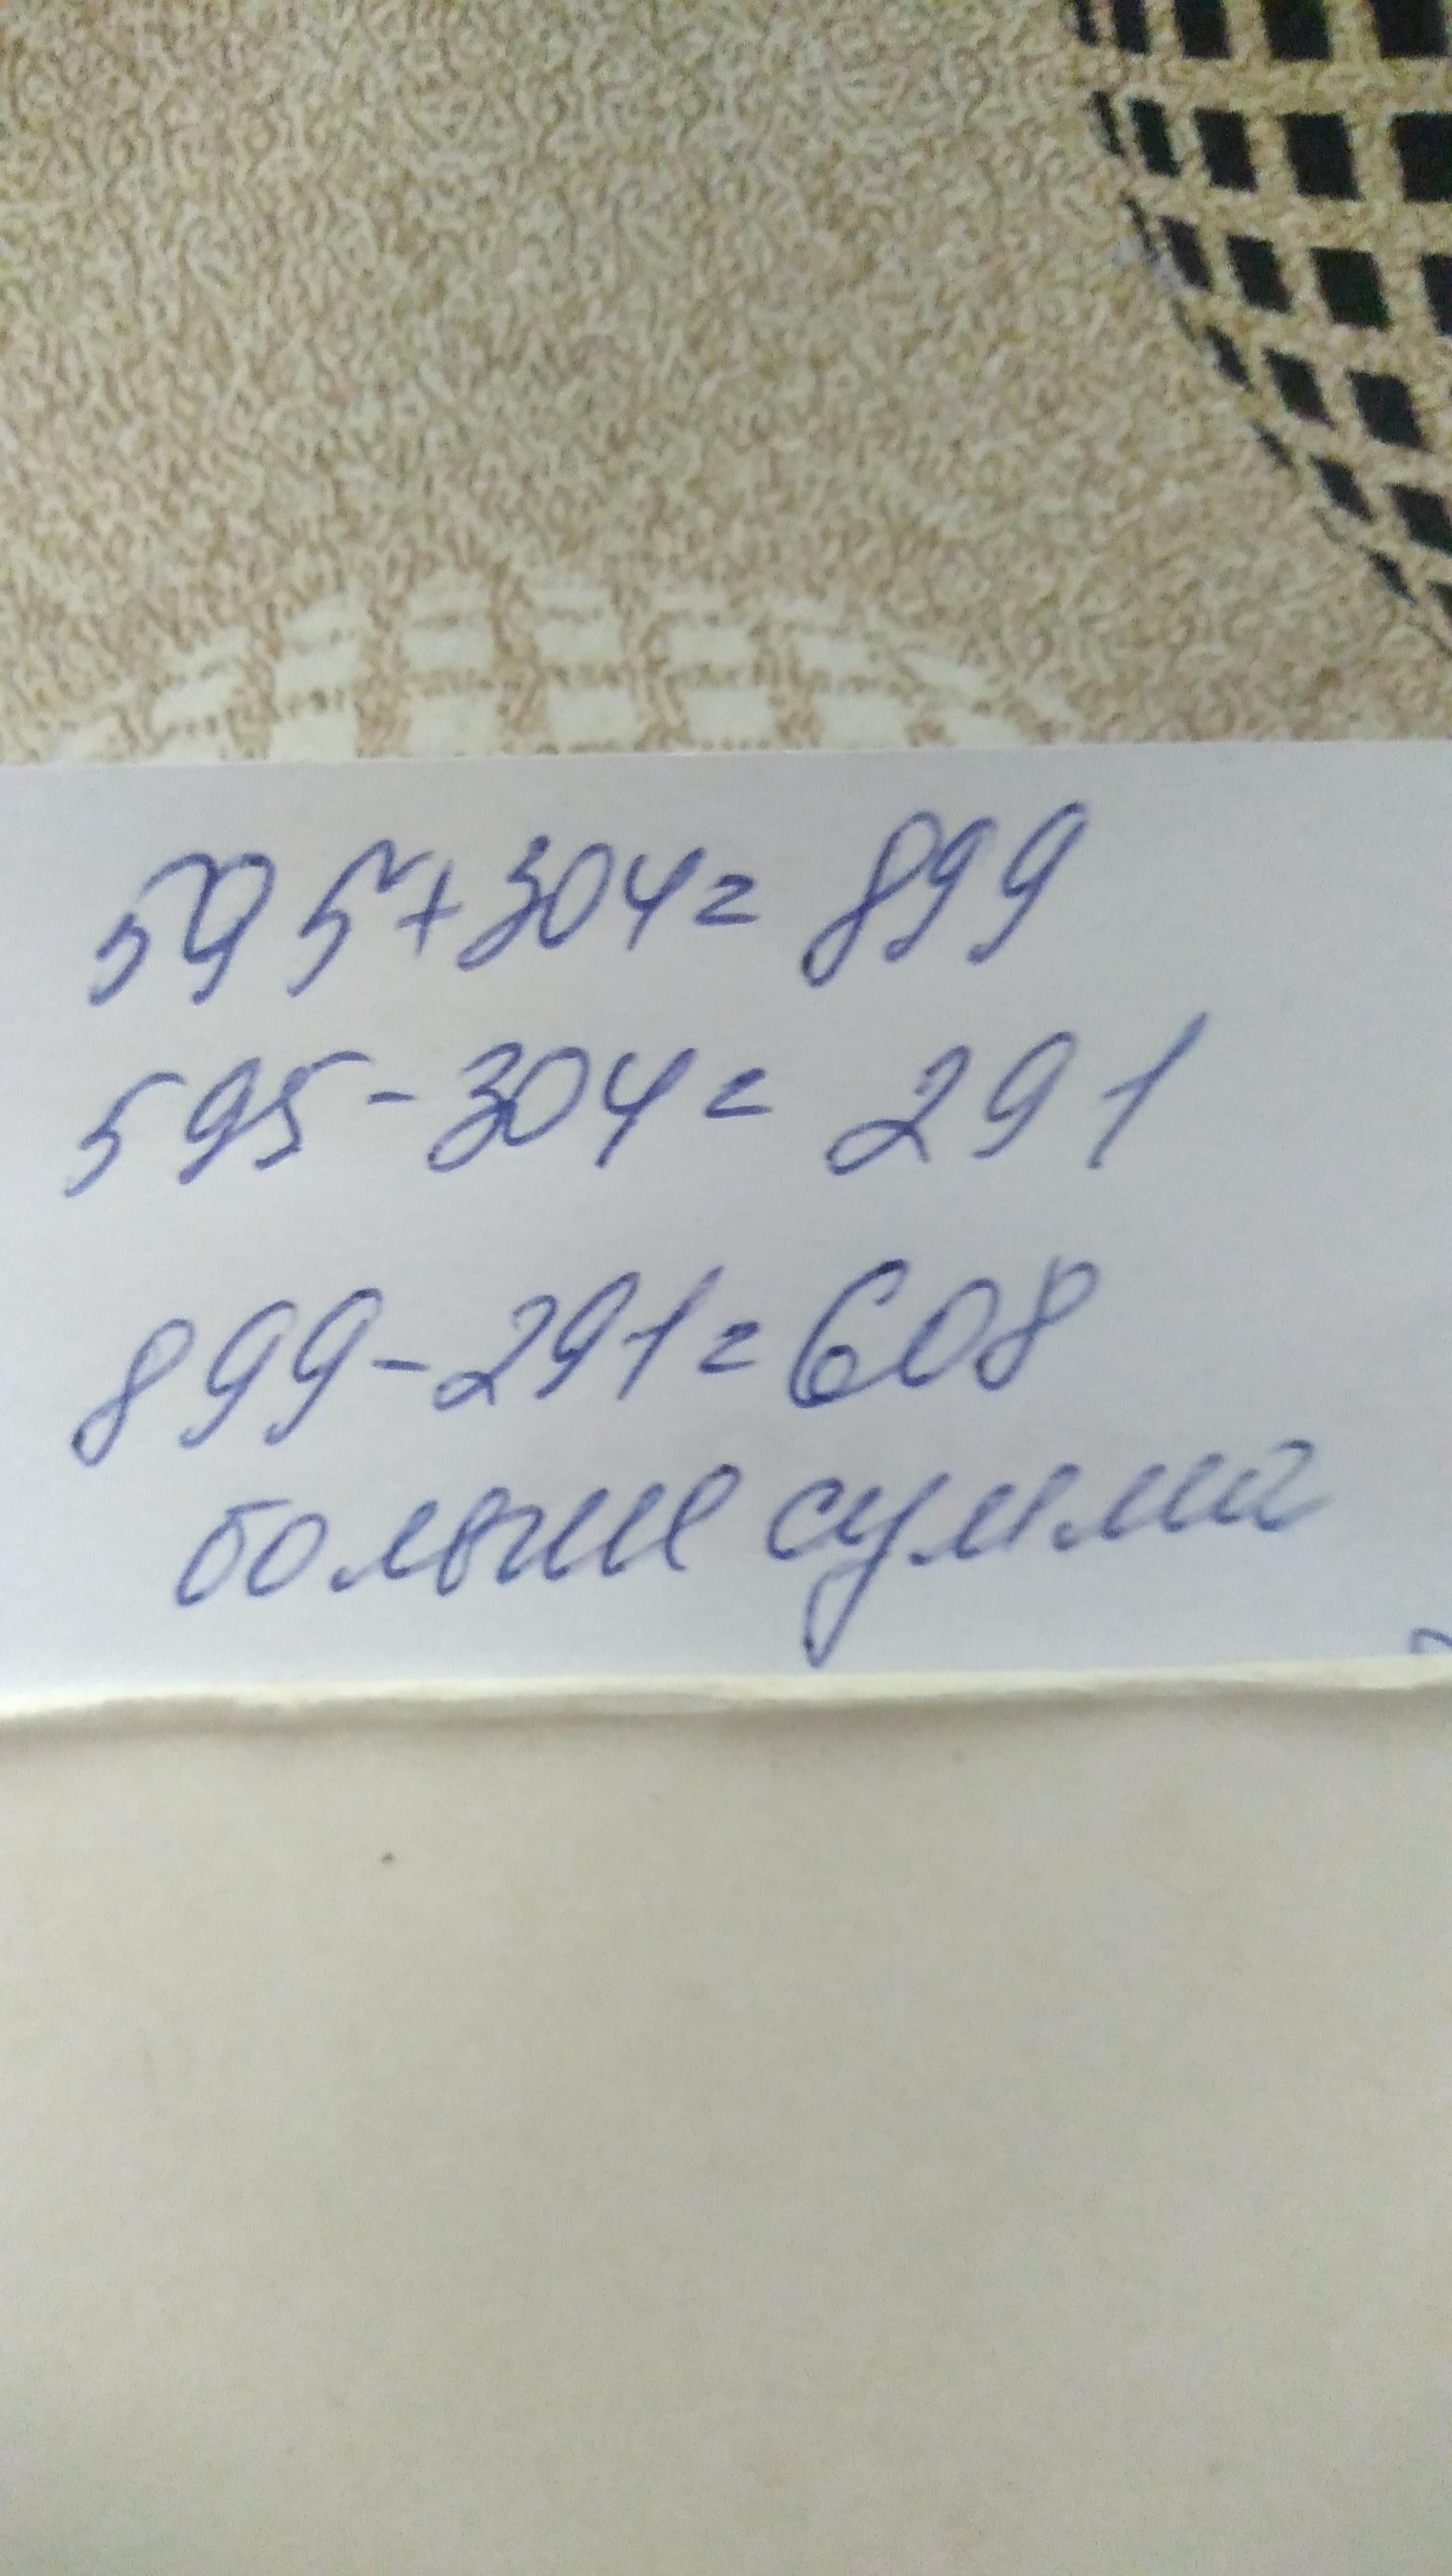 595+304=899
595-304=291
899-291=608
больше сумма